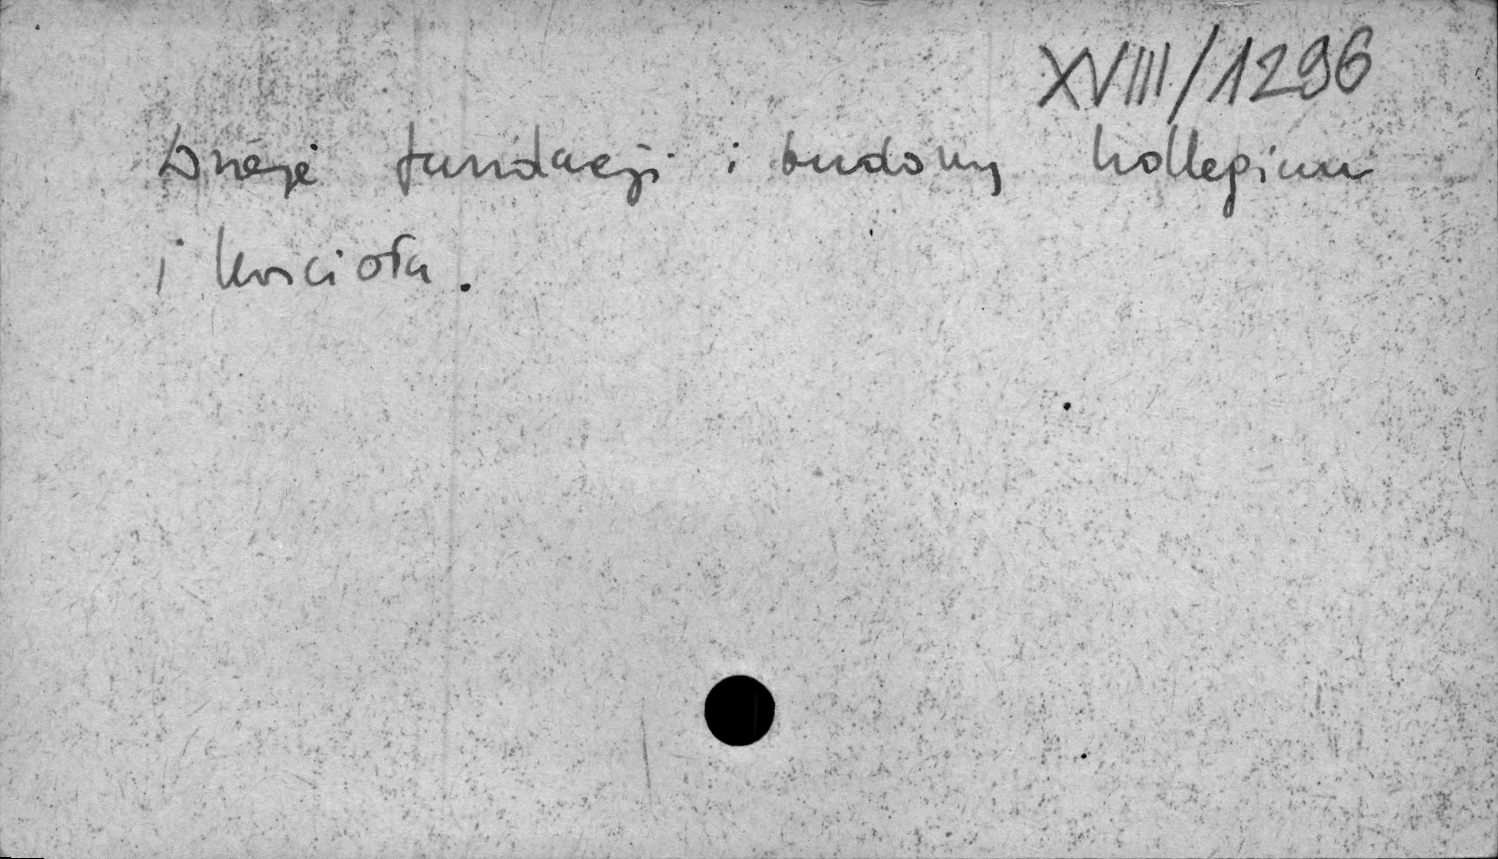 XVIII/1296
Dzieje fundacji i budowy kollegium
i kościoła.